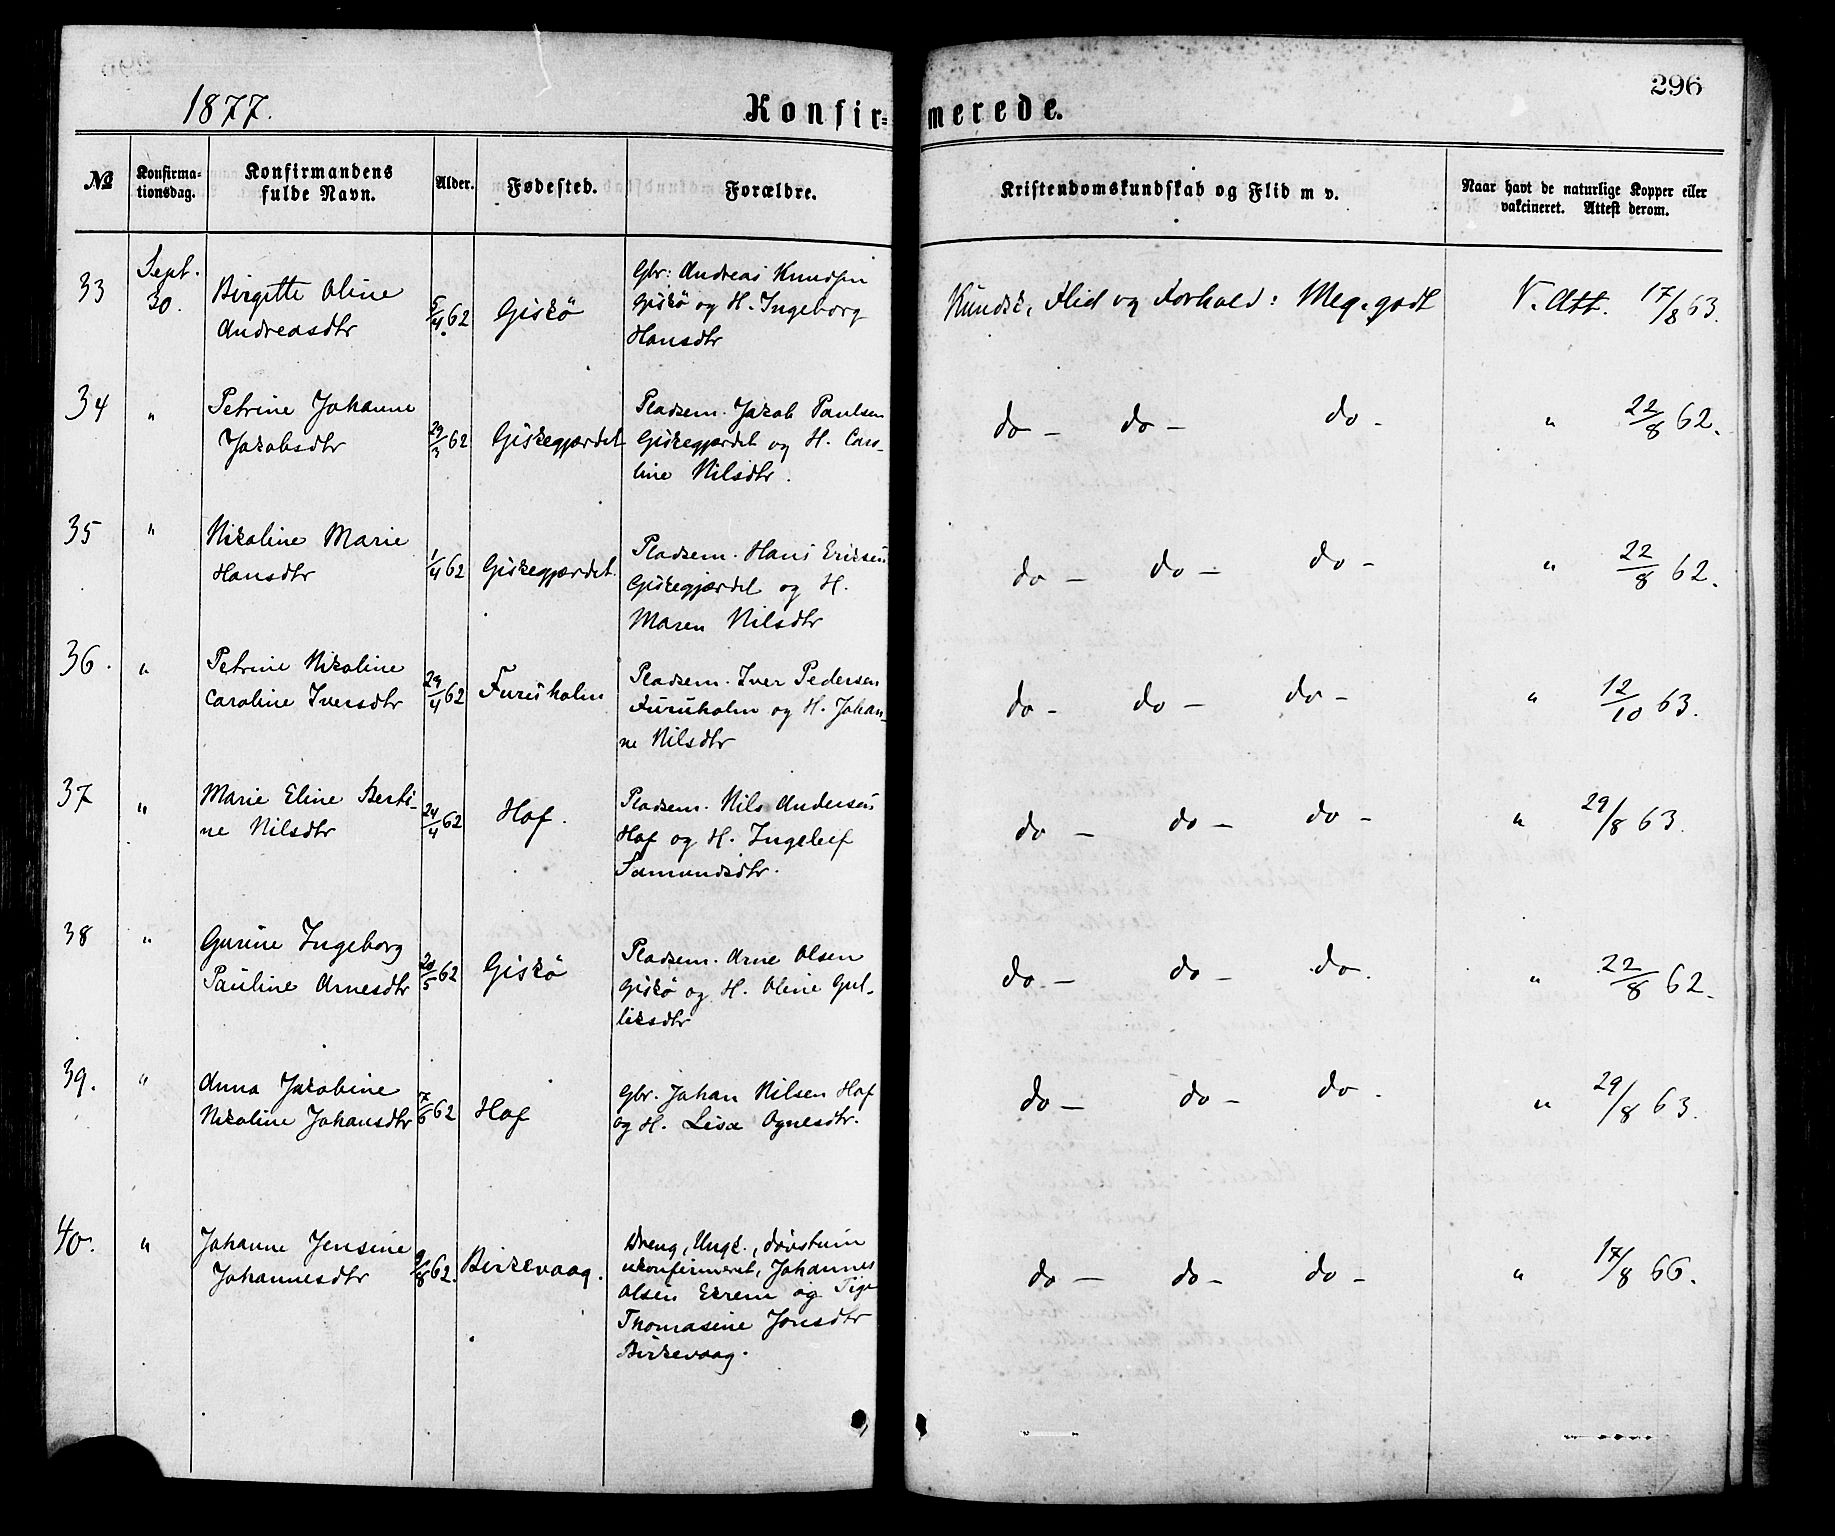 296
1877.
Konfirmerede.
No
Konfirma-
tionsdag.
Konfirmandens
fulde Navn.
Alder.
Fødested.
Forældre.
Kristendomskundskab og Flid m v.
Naar havt de naturlige Kopper eller
vakcineret. Attest derom.
33 Sept. 30. Birgitte Oline
Andreasdtr
5/4 62 Giskø
Gbr: Andreas Knudsen
Giskø og H. Ingeborg
Hansdtr
Kundsk, Flid og Forhold: Meg. godt V. Att. 17/8 63.
34 " Petrine Johanne
Jakobsdtr
29/3 62 Giskegjærdet
Pladsm. Jakob Paulsen
Giskegjærdet og H. Caro-
line Nilsdtr.
do - do - do - " 22/8 62.
35 " Nikoline Marie
Hansdtr
1/4 62 Giskegjærdet.
Pladsm. Hans Ericsen
Giskegjærdet og H.
Maren Nilsdtr
do - do - do - " 22/8 62.
36. " Petrine Nikoline
Caroline Iversdtr
29/4 62 Furuholm
Pladsm. Iver Pedersen
Furuholm og H. Johan-
ne Nilsdtr
do - do - do - " 12/10 63.
37 " Marie Eline Berti-
ne Nilsdtr
24/4 62 Hof.
Pladsm. Nils Andersen
Hof og H. Ingeleif
Samundsdtr.
do - do - do - " 29/8 63.
38 " Gurine Ingeborg
Pauline Arnesdtr
20/5 62 Giskø
Pladsm. Arne Olsen
Giskø og H. Oline Gul-
liksdtr
do. - do - do. " 22/8 62.
39. " Anna Jakobine
Nikoline Johansdtr
7/6 62 Hof
Gbr. Johan Nilsen Hof
og H. Lisa Ognesdtr.
do - do - do. " 29/8 63.
40. " Johanne Jensine
Johannesdtr
9/8 62. Birkevaag.
Dreng, Ungk., døvstum
ukonfirmeret, Johannes
Olsen Ekrem og Pige
Thomasine Jonsdtr
Birkevaag.
do - do - do - " 17/8 66.